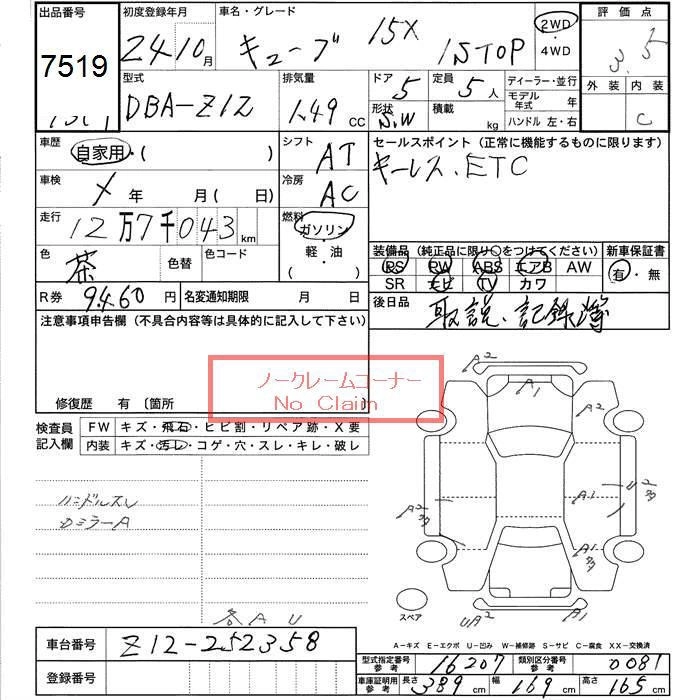 出品番号 初度登録年月 車名・グレード 2WD 評価点
7519 24 10月 キューブ 15X 1STOP ・4WD 3.5
型式 排気量 ドア 定員 ディーラー・並行 外装 内装
DBA-Z12 1.49 CC 5 5人 モデル年式 年 C
形状 S.W 積載 kg ハンドル 左・右
車歴 自家用・( ) シフト AT セールスポイント(正常に機能するものに限ります)
車検 X 年 月( 日) 冷房 AC キーレス、ETC
走行 12万7千043 km 燃料 ガソリン・軽・油・( )
色 茶 色替 色コード
装備品(純正品に限り○をつけてください) 新車保証書
PS PW ABS エアB AW 有・無
SR ナビ TV カワ
R券 9460 円 名変通知期限 月 日 後日品 取説、記録簿
注意事項申告欄(不具合内容等は具体的に記入して下さい)
ノークレームコーナー
No Claim
修復歴 有〔箇所 〕
検査員記入欄 FW キズ・飛石・ヒビ割・リペア跡・X要
内装 キズ・汚レ・コゲ・穴・スレ・キレ・破レ
ハンドルスレ
A2
A1
A2
A2
U2
A1
A1
スペア
UA2
A1
各AU
A-キズ E-エクボ U-凹み W-補修跡 S-サビ C-腐食 XX-交換済
車台番号 Z12-252358
型式指定番号参考 16207 類別区分番号参考 0081
登録番号
車庫証明用参考 長さ 389 cm 幅 169 cm 高さ 165 cm